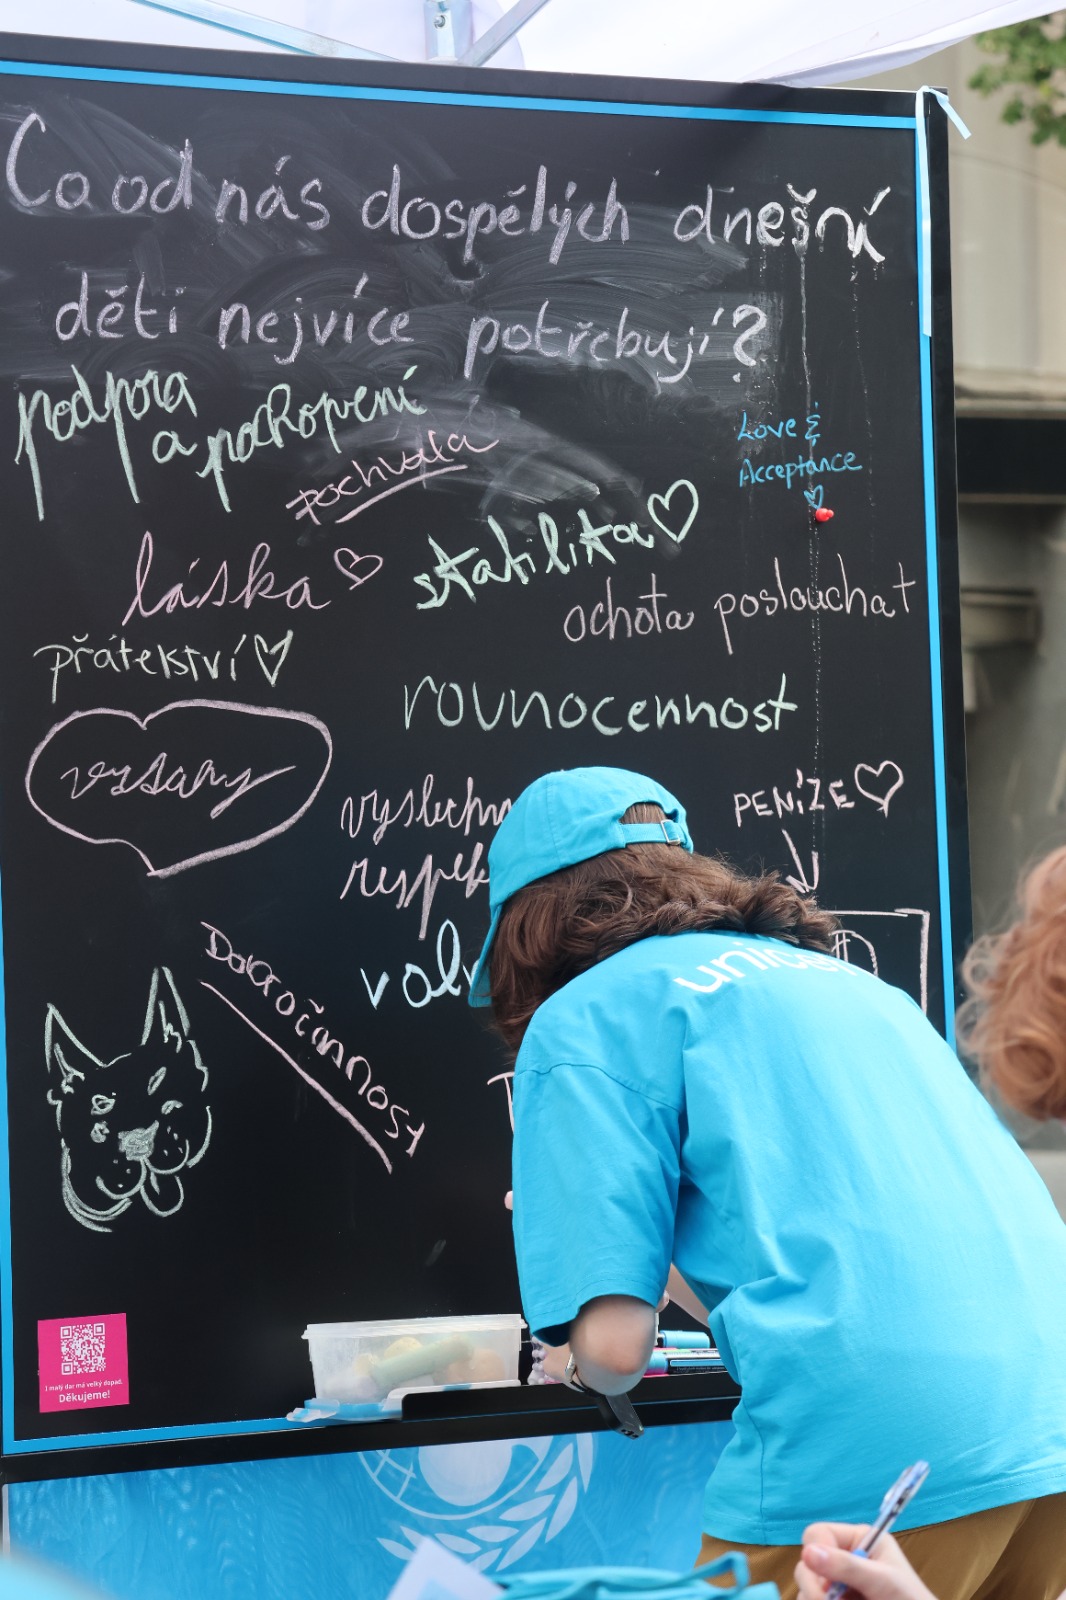 Co od nás dospělých dnešní
děti nejvíce potřebují?
podpora
a pochopení
pochvala
Love &
Acceptance
láska
stabilita
ochota poslouchat
přátelství
rovnocennost
vyslechn
respek
PENÍZE
Dobročinnost
unicef
I malý dar má velký dopad.
Děkujeme!